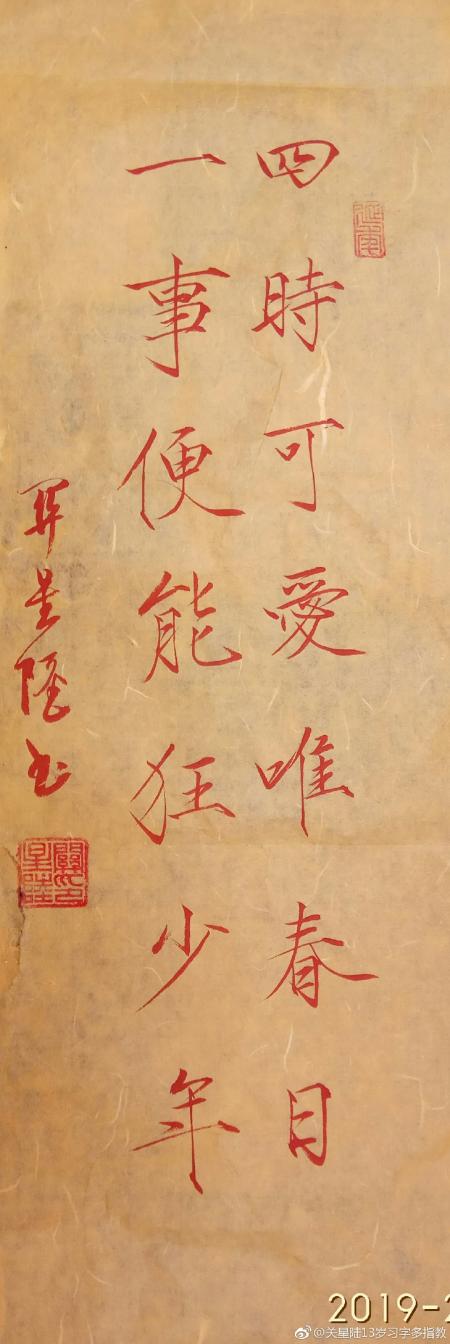 四時可愛唯春日
一事便能狂少年
關星陸书
2019-2
@关星陆13岁习字多指教